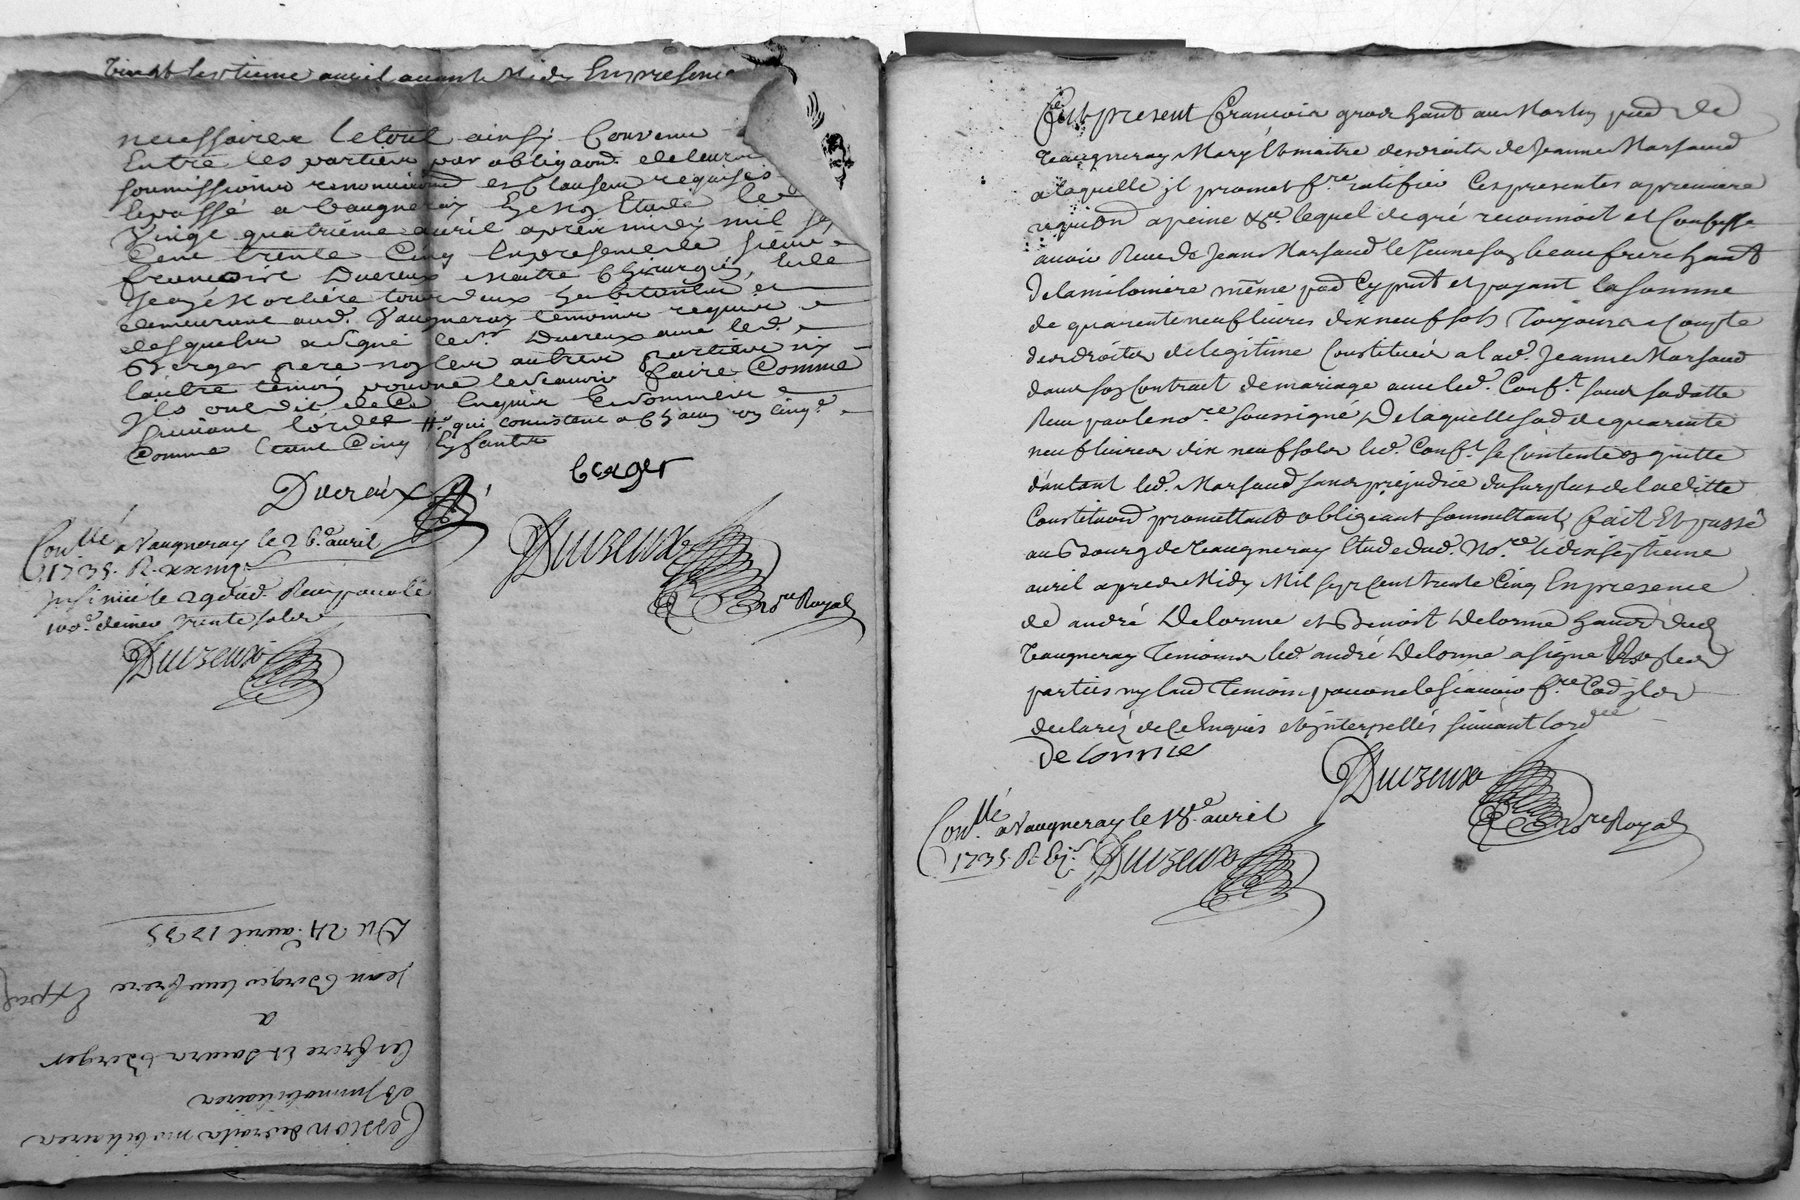 vingt septieme avril avant Midy En presence
necessaires le tout ainsy Convenu
Entre les parties par obligaons. de leurs
soumissions renonciaons et Clauses requises
le passé a Vaugneray En nos Etude le
Vingt quatrième avril après midi mil
Cent trente Cinq En presence de sieur
francois Ducreux Maitre Chirurgien,
tous deux habitants et
demeurant aud. Vaugneray temoins requis
desquels a signé led. sr. Ducreux avec led.
Berger pere non les autres parties ny
lautre temoin pour ne le scavoir faire Comme
Ils ont dit de ce Enquis Et sommés
suivant lord.ee qui consistent
Comme Cinq Enfants
Ducreux
berger
Con.llé a Vaugneray le 26.e avril
1735. R.
Insinué le 29 dud. Reçu pour le
100.e denier trente sols
Duczeux
Duczeux
no.re Royal
Cession de droits mobiliaires
et Immobiliaires
les frere et soeurs Berger
a
jean Berger leur frere
Exped
Du 24.e avril 1735
Fut present Francois gros hant au Martin par.sse de
Vaugneray Mary Et maitre des droits de Jeanne Marsaud
a laquelle il promet f.re ratifier Ces presentes a premiere
requi.on a peine &.a lequel de gré reconnoit et Confesse
avoir Reçu de Jean Marsaud le Jeune son beau frere hant
de la milonière même par.sse Cy pnt et payant la somme
de quarente neuf livres dix neuf sols Toujours a Compte
des droits de legitime Constitués a lad. Jeanne Marsaud
dans son Contrat de mariage avec led. Conf.t sous sa datte
Reçu par le no.re soussigné, De laquelle so.e de quarente
neuf livres dix neuf sols led. Conf.t se Contente et quitte
d'autant led. Marsaud sans prejudice du surplus de laditte
Constituon promettant obligeant soumettant, fait Et passé
au Bourg de Vaugneray Etude dud. No.re le dix septieme
avril apres Midy Mil sept cent trente Cinq En presence
de andré Delorme et Benoist Delorme hants dud.
Vaugneray Temoins led. andré Delorme a signé Non les
parties ny laud. Temoin pour ne le scavoir f.re Co.e ils ont
declaré de Ce Enquis et interpellés suivant lord.ee
De lorme
Duczeux
no.re Royal
Con.llé a Vaugneray le 18.e avril
1735. R. Duczeux